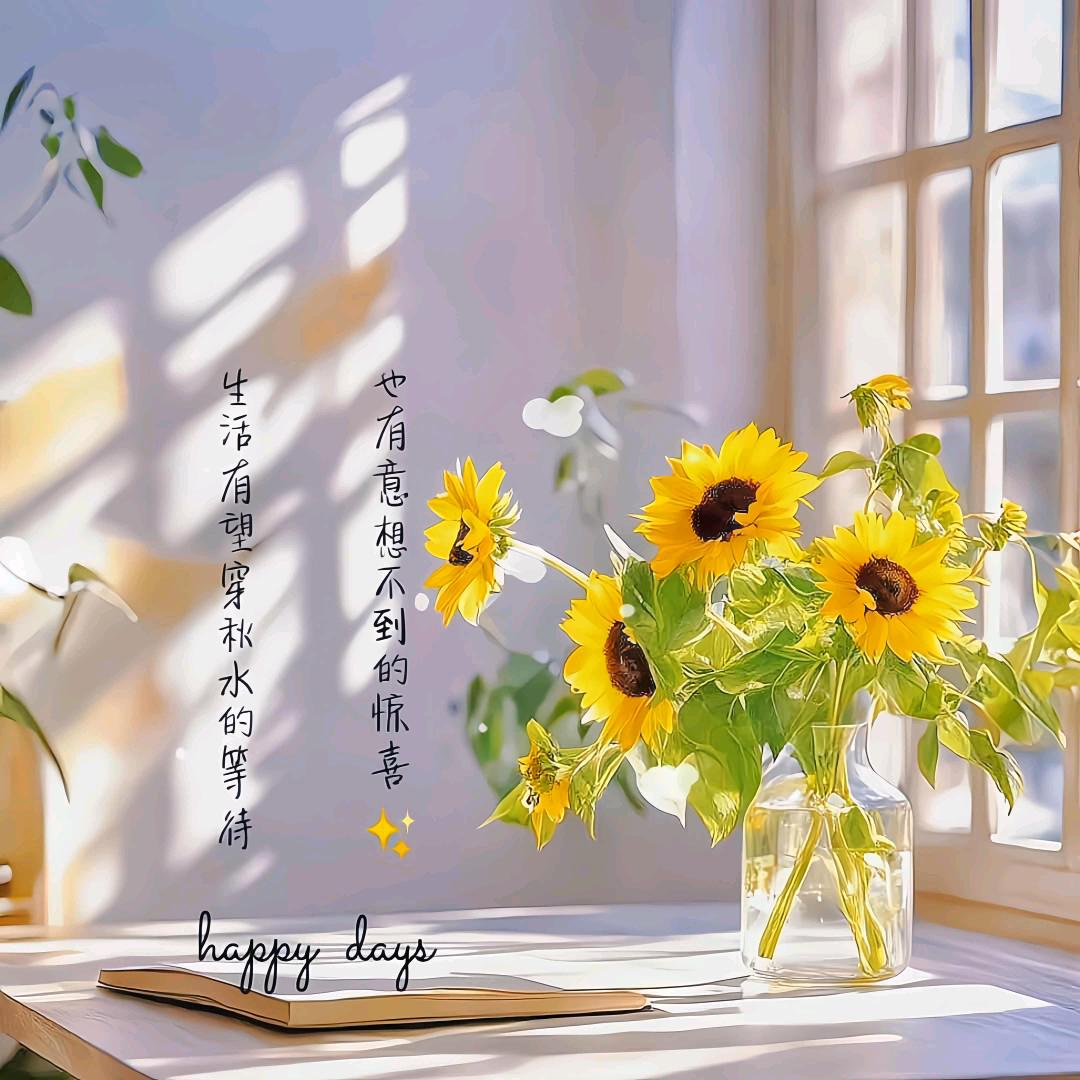 生活有望穿秋水的等待
也有意想不到的惊喜
happy days